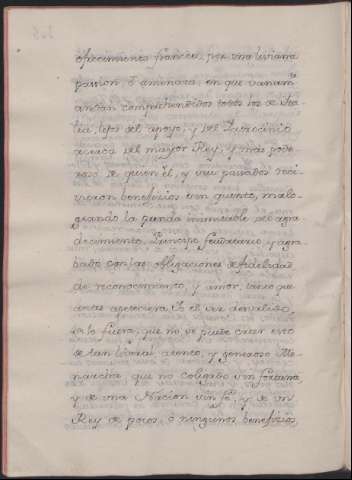 ofrecimiento frances, por una liviana
passion, ò aminaza, en que vanam.te
andan comprehendidos todos los de Ita
lia, lejos del apoyo, y del Patrocinio
acerca del mayor Rey, y mas pode
roso, de quien él, y sus passados reci
vieron beneficios sin quento, malo-
grando la prenda inamisible del agra
decimiento, Principe feudatario, y agra
bado con las obligaciones de fidelidad
de reconocimiento, y amor,
antes apeteciera
ya lo fuera, que no se puede creer esto
de tan leal atento, y generoso Mo
narcha, que no coligado sin fortuna,
y de una Nacion sin fe, y de un
Rey de pocos, ò ningunos beneficios